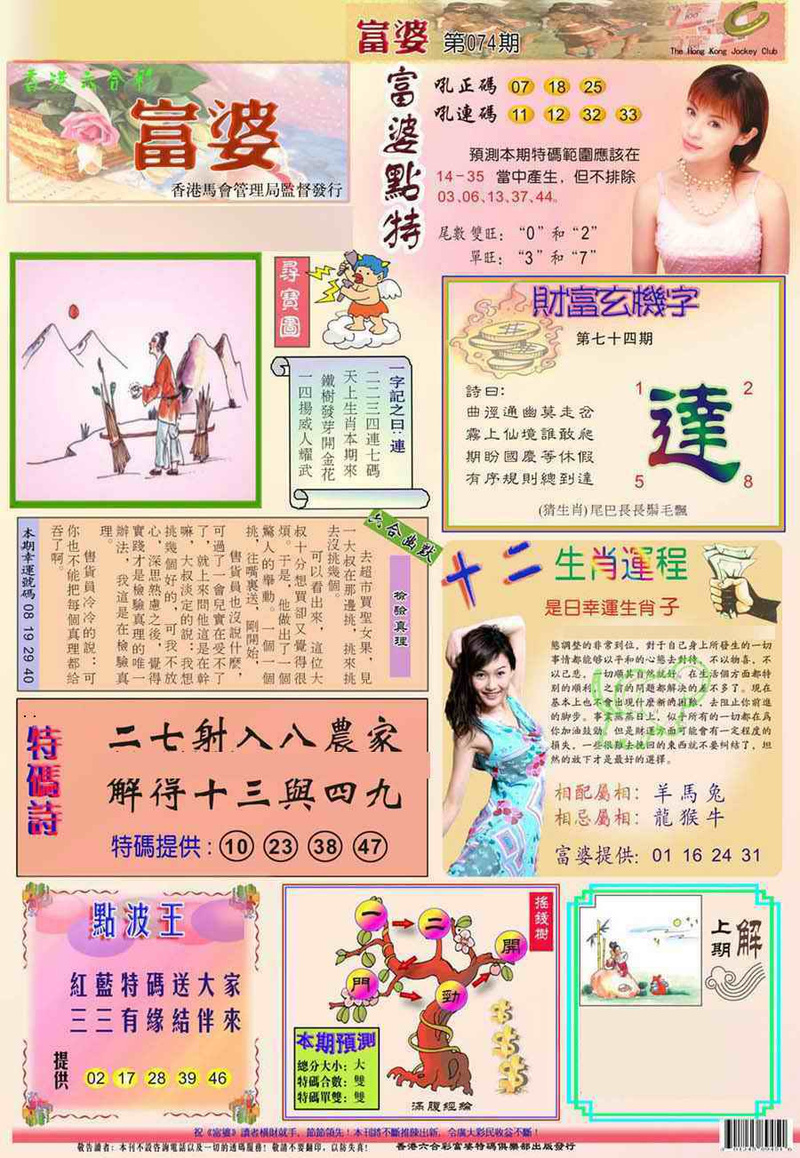 富婆 第074期
The Hong Kong Jockey Club
香港六合彩
富婆
香港馬會管理局監督發行
富婆點特
吼正碼 07 18 25
吼連碼 11 12 32 33
預測本期特碼範圍應該在
14-35 當中產生，但不排除
03、06、13、37、44。
尾數雙旺：“0”和“2”
單旺：“3”和“7”
尋寶圖
一字記之曰：連
二二三四連七碼
天上生肖本期來
鐵樹發芽開金花
一四揚威人耀武
財富玄機字
第七十四期
詩曰：
曲徑通幽莫走岔
霧上仙境誰敢爬
期盼國慶等休假
有序規則總到達
1 2
達
5 8
(猜生肖)尾巴長長鬃毛飄
六合幽默
檢驗真理
去超市買聖女果，見
一大叔在那邊挑，挑來挑
去沒挑幾個。
可以看出來，這位大
叔十分想買卻又覺得很
煩。于是，他做出了一個
驚人的舉動。一個一個
挑，往嘴裏送，剛開始，
售貨員也沒說什麼，
可過了一會兒實在受不了
了，就上來問他這是在幹
嘛，大叔淡定的說：我想
挑幾個好的，可我不放
心，深思熟慮之後，覺得
實踐才是檢驗真理的唯一
辦法，我這是在檢驗真
理。
售貨員冷冷的說：可
你也不能把每個真理都給
吞了啊。
本期幸運號碼 08 19 29 40
十二生肖運程
是日幸運生肖 子
態調整的非常到位，對于自己身上所發生的一切
事情都能够以平和的心態去對待，不以物喜，不
以己悲，一切順其自然就好，在生活個方面都特
別的順利，之前的問題都解決的差不多了。現在
基本上也不會出現什麼新的困難，去阻止你前進
的脚步。事業蒸蒸日上，似乎所有的一切都在爲
你加油鼓勁，但是財運方面可能會有一定程度的
損失，一些很難去挽回的東西就不要糾結了，坦
然的放下才是最好的選擇。
相配屬相：羊馬兔
相忌屬相：龍猴牛
富婆提供：01 16 24 31
特碼詩
二七射入八農家
解得十三與四九
特碼提供：10 23 38 47
點波王
紅藍特碼送大家
三三有緣結伴來
提供
02 17 28 39 46
搖錢樹
一 二 開
門 勁
本期預測
總分大小：大
特碼合數：雙
特碼單雙：雙
滿腹經綸
上期解
祝《富婆》讀者橫財就手，節節領先！本刊將不斷推陳出新，令廣大彩民收益不斷！
敬告讀者：本刊不設咨詢電話以及一切的透碼服務！敬請不要翻印，以防失真！ 香港六合彩富婆特碼俱樂部出版發行